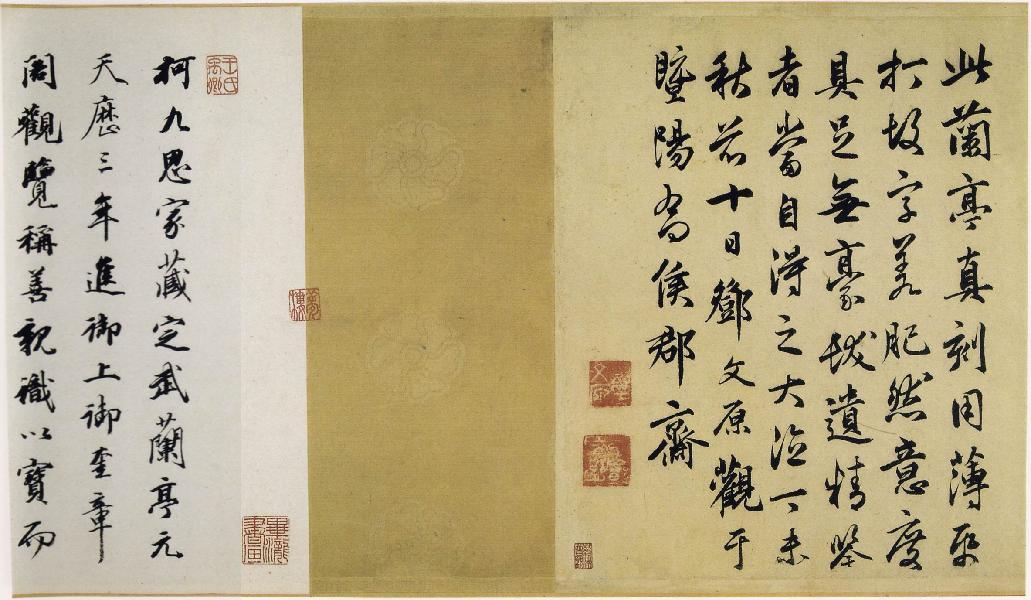 此蘭亭真刻用薄紙
打故字差肥然意度
具足無豪髮遺精鑒
者當自得之大德丁未
秋前十日鄧文原觀于
暨陽喬侯郡齋
王氏禹卿
柯九思家藏定武蘭亭元
天曆三年進御上御奎章
閣觀覽稱善親識以寶而